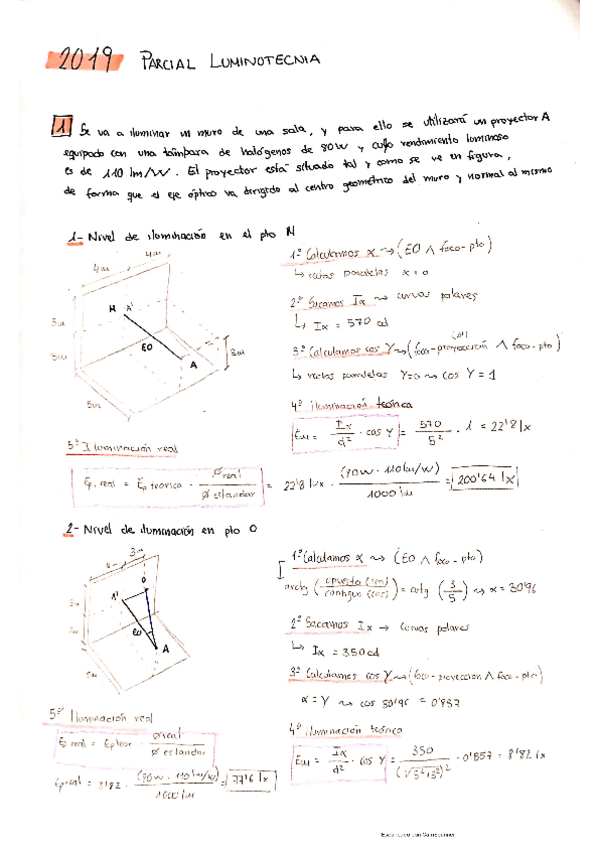 2019 PARCIAL LUMINOTECNIA
1 Se va a iluminar un muro de una sala, y para ello se utilizará un proyector A
equipado con una lámpara de halógenos de 80W y cuyo rendimiento luminoso
es de 110 lm/W. El proyector está situado tal y como se ve en figura,
de forma que el eje óptico va dirigido al centro geométrico del muro y normal al mismo
1- Nivel de iluminación en el pto M
4m
4m
M A'
3m
3m
EO
A
3m
5m
1º Calculamos α → (EO ∧ foco-pto)
↳ rectas paralelas α = 0
2º Sacamos Iα → curvas polares
↳ Iα = 570 cd
3º Calculamos cos γ → (foco-proyección ∧ foco-pto)
↳ rectas paralelas γ=0 → cos γ = 1
4º iluminación teórica
EM = Iα/d² · cos γ = 570/5² · 1 = 22'8 lx
5º Iluminación real
Ep. real = Ep teorica · Ø real / Ø estandar = 22'8 lux · (80W · 110 lm/W) / 1000 lm = 200'64 lx
2- Nivel de iluminación en pto O
3m
4-
O
A'
3m
3m
EO
A
5m
1º Calculamos α → (EO ∧ foco-pto)
arctg (opuesto (sen) / contiguo (cos)) = arctg (3/5) → α = 30'96
2º Sacamos Iα → Curvas polares
↳ Iα = 350 cd
3º Calculamos cos γ → (foco-proyección ∧ foco-pto)
α = γ → cos 30'96 = 0'857
4º iluminación teórica
EM = Iα/d² · cos γ = 350 / (√5²+3²)² · 0'857 = 8'82 lx
5º Iluminación real
Ep real = Ep teor · Ø real / Ø estandar
Ep real = 8'82 · (80W · 110 lm/W) / 1000 lm = 77'6 lx
Escaneado con CamScanner